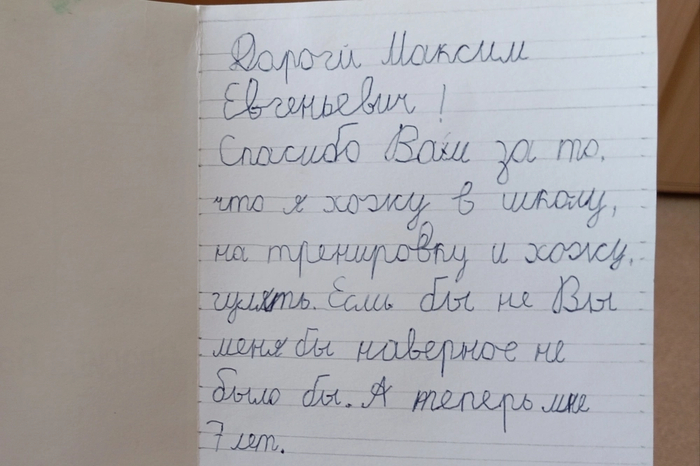 Дороги Максим
Евгеньевич!
Спасибо Вам за то,
что я хожу в школу,
на тренировку и хожу
гулять. Если бы не Вы
меня бы наверное не
было бы. А теперь мне
7 лет.